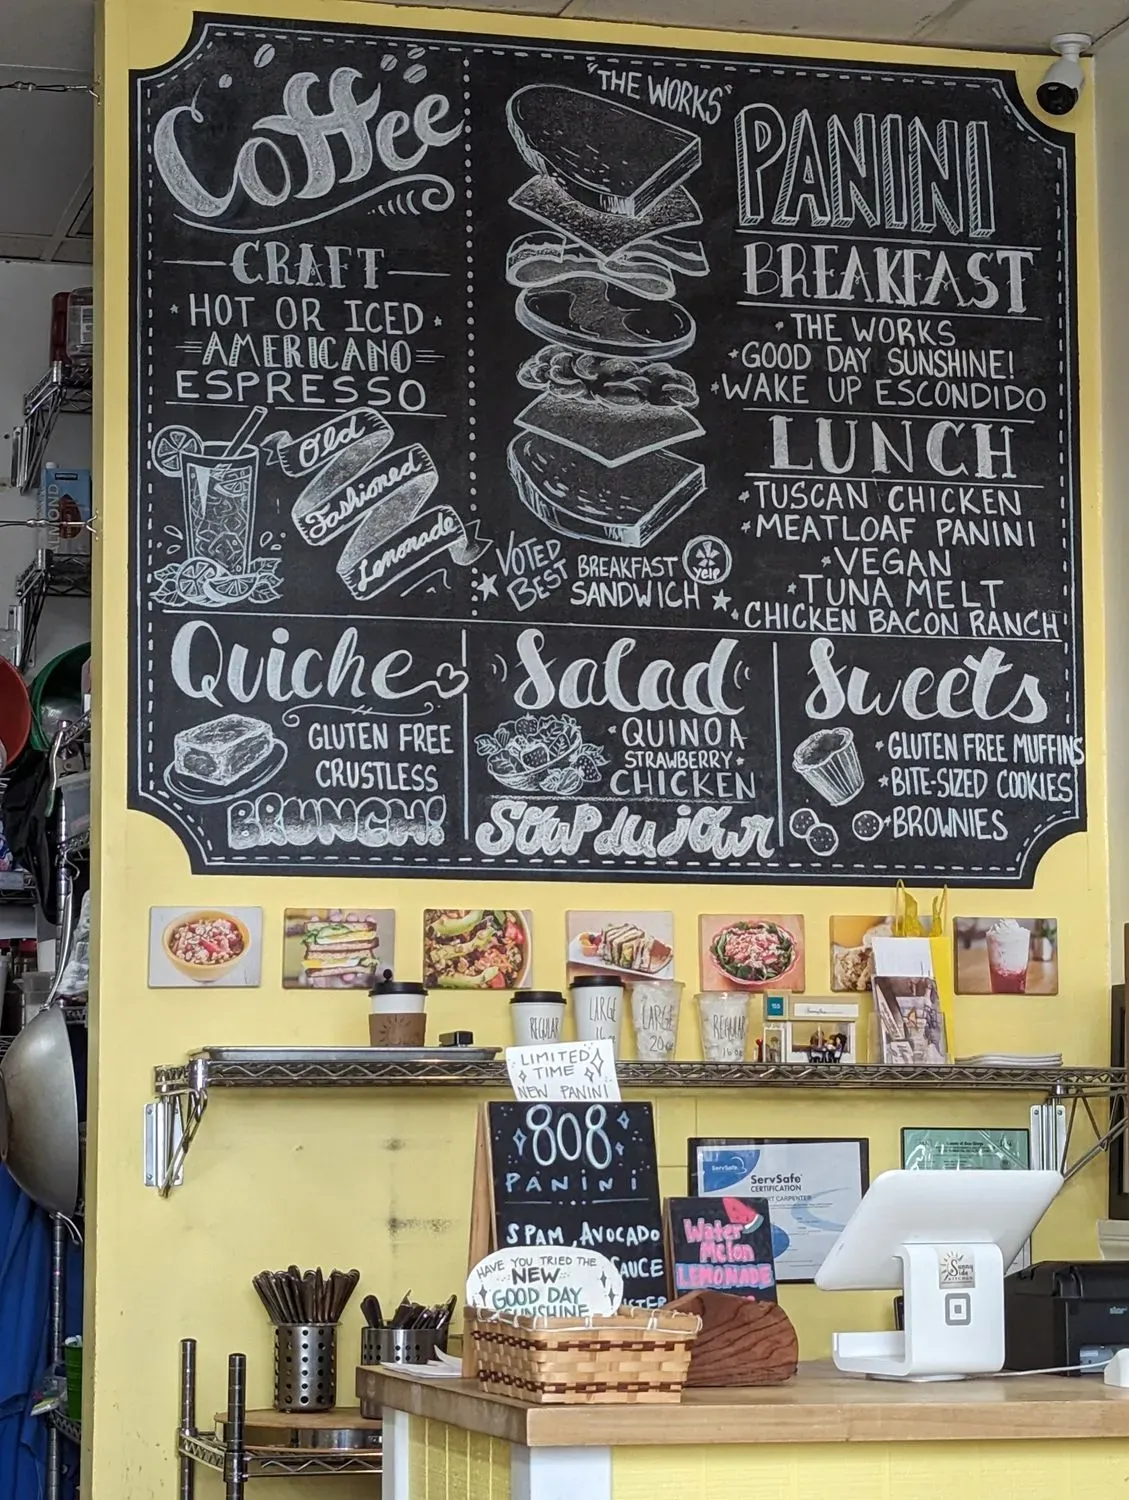 Coffee
CRAFT
HOT OR ICED
AMERICANO
ESPRESSO
Old
Fashioned
Lemonade
"THE WORKS"
VOTED
BEST
BREAKFAST
SANDWICH
yelp
PANINI
BREAKFAST
THE WORKS
GOOD DAY SUNSHINE!
WAKE UP ESCONDIDO
LUNCH
TUSCAN CHICKEN
MEATLOAF PANINI
VEGAN
TUNA MELT
CHICKEN BACON RANCH
Quiche
GLUTEN FREE
CRUSTLESS
BRUNCH!
Salad
QUINOA
STRAWBERRY
CHICKEN
Soup du jour
Sweets
GLUTEN FREE MUFFINS
BITE-SIZED COOKIES
BROWNIES
REGULAR
LARGE
16
LARGE
20oz
REGULAR
16oz
LIMITED
TIME
NEW PANINI
808
PANINI
SPAM, AVOCADO
SAUCE
HAVE YOU TRIED THE
NEW
GOOD DAY
SUNSHINE
Water
Melon
LEMONADE
ServSafe
ServSafe
CERTIFICATION
CARPENTER
Sunny
Side
KITCHEN
star